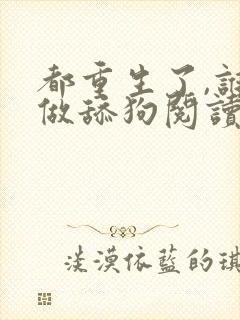 都重生了,誰
做舔狗閱讀
淡漠依藍的琪